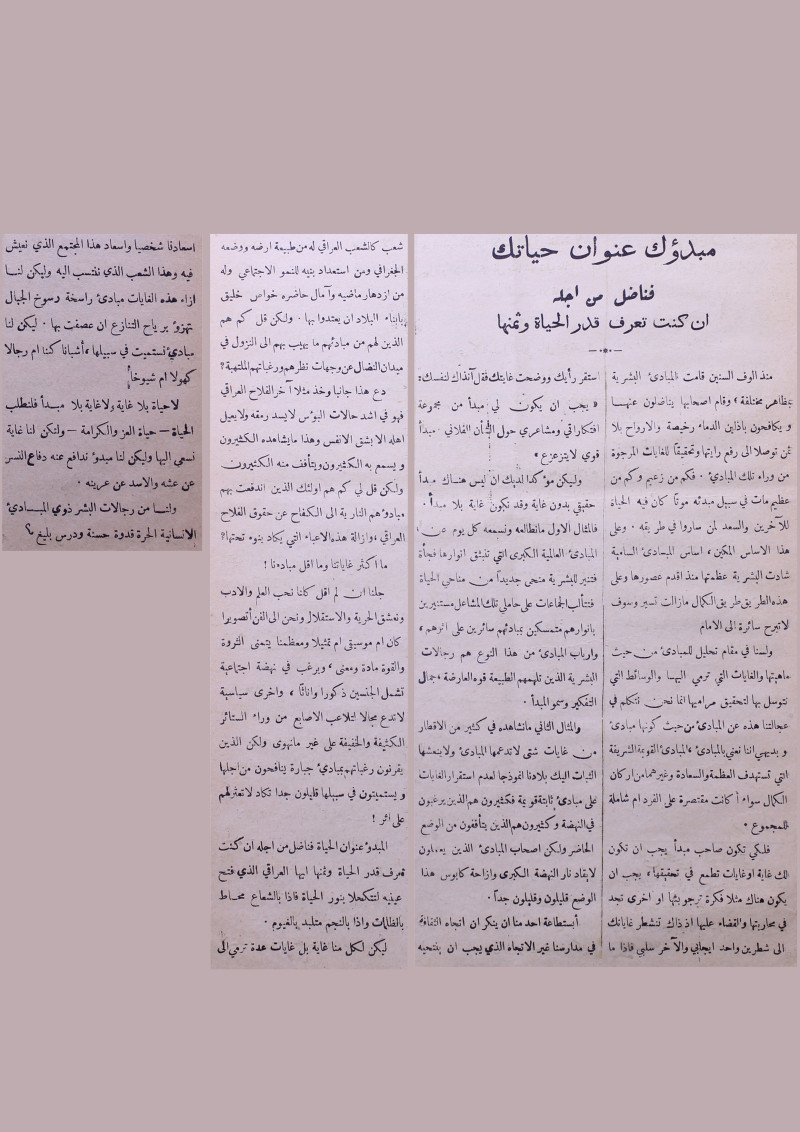 مبدؤك عنوان حياتك
فناضل من اجله
ان كنت تعرف قدر الحياة وثمنها
منذ الوف السنين قامت المبادئ البشرية
بمظاهر مختلفة، وقام اصحابها يناضلون عنهــا
و يكافحون باذلين الدماء رخيصة والارواح بلا
ثمن توصلا الى رفع رايتها وتحقيقاً للغايات المرجوة
من وراء تلك المبادئ . فكم من زعيم وكم من
عظيم مات في سبيل مبدئه موتاً كان فيه الحياة
للآخرين والسعد لمن ساروا في طريقه . وعلى
هذا الاساس المكين، اساس المبــادئ السامية
شادت البشرية عظمتها منذ اقدم عصورها وعلى
هذه الطريق طريق الكمال مازالت تسير وسوف
لاتبرح سائرة الى الامام
ولسنا في مقام تحليل للمبادئ من حيث
ماهيتها والغايات التي ترمي اليهــا والوسائط التي
نتوسل بها لتحقيق مراميها انما نحن نتكلم في
عجالتنا هذه عن المبادئ من حيث كونها مبادئ
و بديهي اننا نعني بالمبادئ، المبادئ القويمة الشريفة
التي تستهدف العظمة والسعادة وغيرهما من اركان
الكمال سواء أ كانت مقتصرة على الفرد ام شاملة
للمجموع .
فلكي تكون صاحب مبدأ يجب ان تكون
لك غاية او غايات تطمع في تحقيقها، يجب ان
يكون هناك مثلا فكرة ترجو بثها او اخرى تجد
في محاربتها والقضاء عليها اذ ذاك تنشطر غاياتك
الى شطرين واحد ايجابي والآخر سلبي فاذا ما
استقر رأيك ووضحت غايتك فقل آنذاك لنفسك:
« يجب ان يكون لي مبدأ من مجموعة
افتكاراتي ومشاعري حول الشأن الفلاني مبدأ
قوي لايتزعزع »
وليكن مؤكدا لديك ان ليس هنــاك مبدأ
حقيقي بدون غاية وقد تكون غاية بلا مبدأ .
فالمثال الاول مانطالعه ونسمعه كل يوم عن
المبادئ العالمية الكبرى التي تنبثق انوارها فجأة
فتنير للبشرية منحى جديداً من مناحي الحياة
فتتألب الجماعات على حاملي تلك المشاعل مستنيرين
بانوارهم متمسكين بمبادئهم سائرين على اثرهم،
وارباب المبادئ من هذا النوع هم رجالات
البشرية الذين تلهمهم الطبيعة قوة العارضة، جمال
التفكير وسمو المبدأ .
والمثال الثاني مانشاهده في كثير من الاقطار
من غايات شتى لاتدعمها المبادئ ولاينعشها
الثبات اليك بلادنا انموذجا لعدم استقرار الغايات
على مبادئ ثابتة قويمة فكثيرون هم الذين يرغبون
في النهضة وكثيرون هم الذين يتأففون من الوضع
الحاضر ولكن اصحاب المبادئ الذين يعملون
لايقاد نار النهضة الكبرى وازاحة كابوس هذا
الوضع قليلون وقليلون جداً .
أبستطاعة احد منا ان ينكر ان اتجاه الثقافة
في مدارسنا غير الاتجاه الذي يجب ان ينتحيه
شعب كالشعب العراقي له من طبيعة ارضه ووضعه
الجغرافي ومن استعداد بنيه للنمو الاجتماعي وله
من ازدهار ماضيه وآمال حاضره خواص خليق
بابناء البلاد ان يعتدوا بها . ولكن قل كم هم
الذين لهم من مبادئهم ما يهيب بهم الى النزول في
ميدان النضال عن وجهات نظرهم ورغباتهم الملتهبة؟
دع هذا جانبا وخذ مثلا آخر الفلاح العراقي
فهو في اشد حالات البؤس لايسد رمقه ولايعيل
اهله الا بشق الانفس وهذا مايشاهده الكثيرون
و يسمع به الكثيرون ويتأفف منه الكثيرون
ولكن قل لي كم هم اولئك الذين اندفعت بهم
مبادؤهم النارية الى الكفاح عن حقوق الفلاح
العراقي، وازالة هذه الاعباء التي يكاد ينوء تحتها؟
ما اكثر غاياتنا وما اقل مبادءنا !
جلنا ان لم اقل كلنا نحب العلم والادب
ونعشق الحرية والاستقلال ونحن الى الفن أتصويرا
كان ام موسيقى ام تمثيلا ومعظمنا يتمنى الثروة
والقوة مادة ومعنى، ويرغب في نهضة اجتماعية
تشمل الجنسين ذكورا واناثا، واخرى سياسية
لاتدع مجالا لتلاعب الاصابع من وراء الستائر
الكثيفة والخفيفة على غير مانهوى ولكن الذين
يقرنون رغباتهم بمبادئ جبارة ينافحون من اجلها
و يستميتون في سبيلها قليلون جدا تكاد لاتعثر لهم
على اثر !
المبدؤ عنوان الحياة فناضل من اجله ان كنت
تعرف قدر الحياة وثمنها ايها العراقي الذي فتح
عينيه لتتكحلا بنور الحياة فاذا بالشعاع محــاط
بالظلمات واذا بالنجم متلبد بالغيوم .
ليكن لكل منا غاية بل غايات عدة ترمي الى
اسعادنا شخصيا واسعاد هذا المجتمع الذي نعيش
فيه وهذا الشعب الذي ننتسب اليه وليكن لنــا
ازاء هذه الغايات مبادئ راسخة رسوخ الجبال
تهزؤ برياح التنازع ان عصفت بها . ليكن لنا
مبادئ نستميت في سبيلها، أشبانا كنا ام رجالا
كهولا ام شيوخا،
لاحياة بلا غاية ولاغاية بلا مبــدأ فلنطلب
الحياة – حياة العز والكرامة – ولتكن لنا غاية
نسعى اليها وليكن لنا مبدؤ ندافع عنه دفاع النسر
عن عشه والاسد عن عرينه .
ولنــا من رجالات البشر ذوي المبــادئ
الانسانية الحرة قدوة حسنة ودرس بليغ